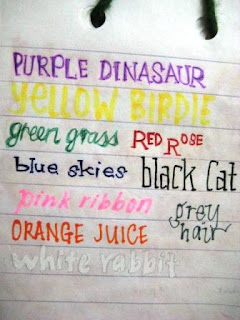 PURPLE DINASAUR
YELLOW BIRDIE
green grass RED ROSE
blue skies black Cat
pink ribbon grey
hair
ORANGE JUICE
white rabbit